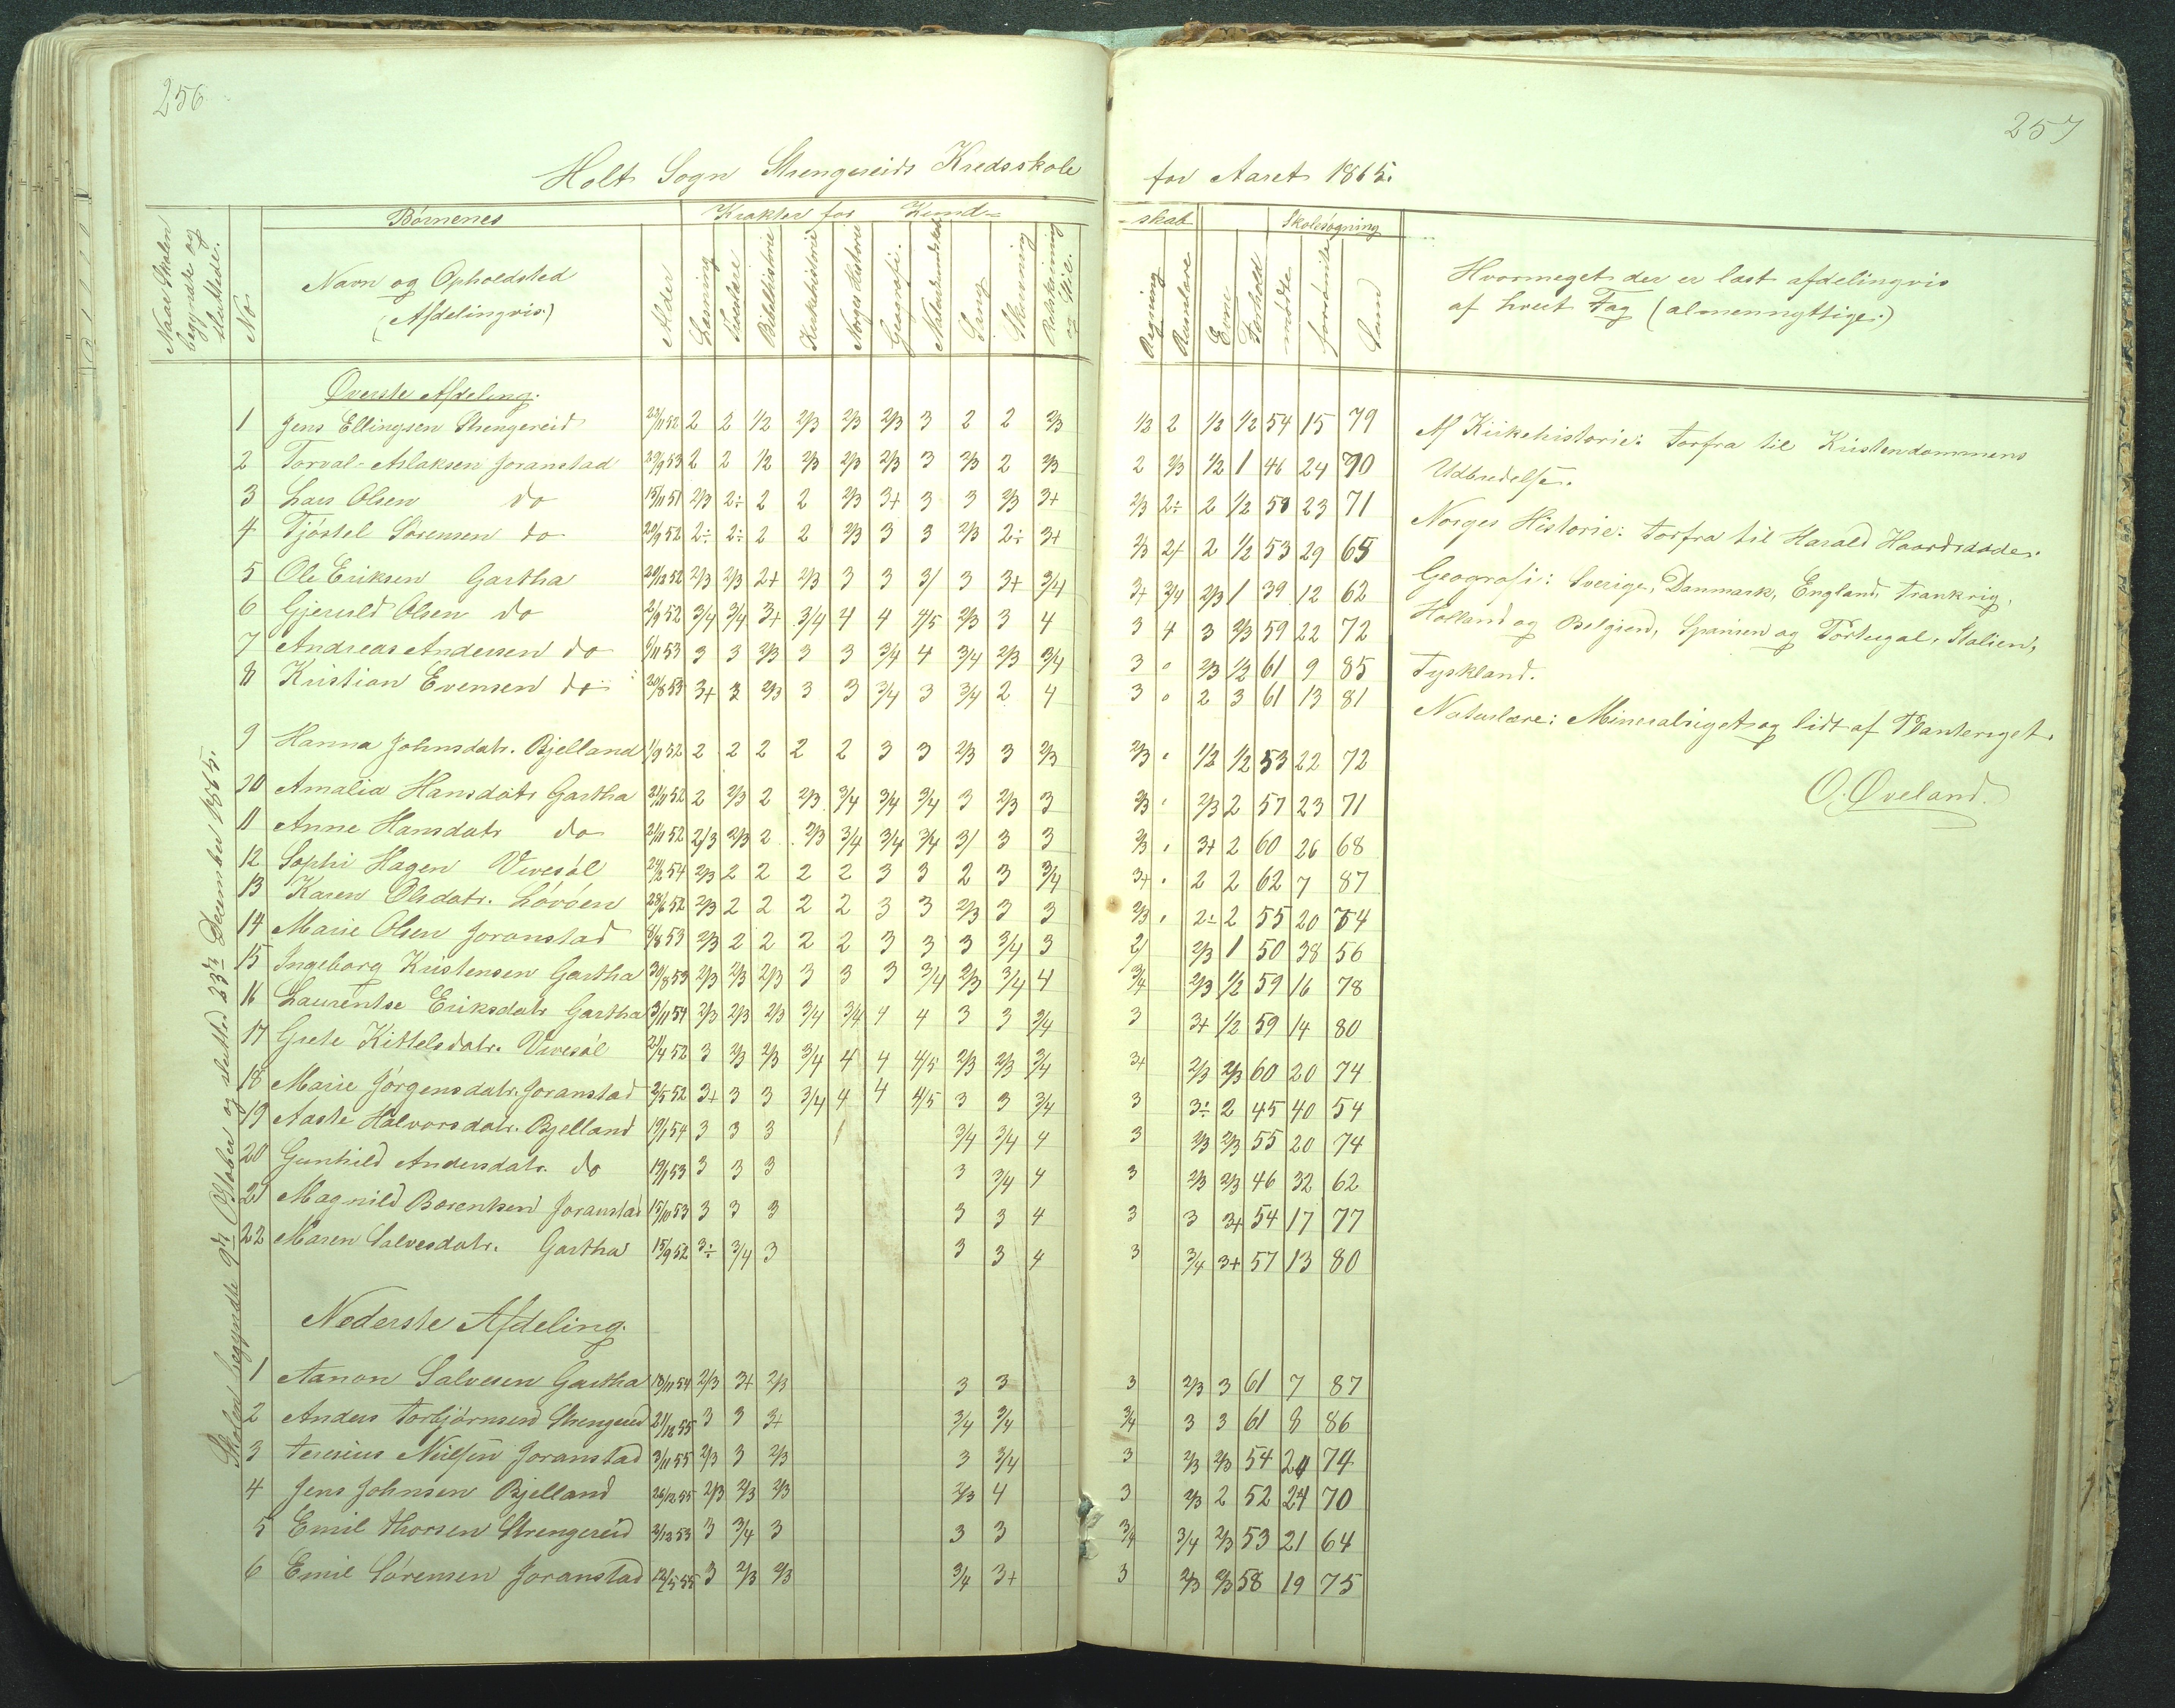 256
Holt Sogn Strengereids Kredsskole
Naar Skolen begyndte og sluttede.
No
Børnenes
Navn og Opholdsted
(Afdelingvis)
Karakter for Kund-
Alder
Læsning
Bibelhistorie
Kirkehistorie
Norges Historie
Geografi.
Sang
Skrivning
Retskrivning og Stil.
Skolen begyndte 9de Oktober og sluttet 23de December 1865.
Øverste Afdeling.
1 Jens Ellingsen Strengereid 22/11 52 2 2 1/2 2/3 2/3 2/3 3 2 2 2/3
2 Torval-Aslaksen Joranstad 29/9 53 2 2 1/2 2/3 2/3 2/3 3 2/3 2 2/3
3 Lars Olsen do 15/11 51 2/3 2÷ 2 2 2/3 3+ 3 3 2/3 3+
4 Tjøstel Sørensen do 20/9 52 2÷ 2÷ 2 2 2/3 3 3 2/3 2÷ 3+
5 Ole Eriksen Gartha 20/12 52 2/3 2/3 2+ 2/3 3 3 3/ 3 3+ 3/4
6 Gjeruld Olsen do 2/9 52 3/4 3/4 3+ 3/4 4 4 4/5 2/3 3 4
7 Andreas Andersen do 6/11 53 3 3 2/3 3 3 3/4 4 3/4 2/3 3/4
8 Kristian Evensen do 20/8 53 3+ 3 2/3 3 3 3/4 3 3/4 2 4
9 Hanna Johnsdatr. Bjelland 1/9 52 2 2 2 2 2 3 3 2/3 3 2/3
10 Amalia Hansdatr Gartha 21/11 52 2 2/3 2 2/3 3/4 3/4 3/4 3 2/3 3
11 Anne Hansdatr do 21/11 52 2/3 2/3 2 2/3 3/4 3/4 3/4 3/ 3 3
12 Sophi Hagen Vivesøl 24/2 54 2/3 2 2 2 2 3 3 2 3 3/4
13 Karen Olsdatr. Løvøen 28/6 52 2/3 2 2 2 2 3 3 2/3 3 3
14 Marie Olsen Joranstad 8/8 53 2/3 2 2 2 2 3 3 3 3/4 3
15 Ingeborg Kristensen Gartha 30/8 53 2/3 2/3 2/3 3 3 3 3/4 2/3 3/4 4
16 Laurentse Eriksdatr Gartha 3/11 54 2/3 2/3 2/3 3/4 3/4 4 4 3 3 3/4
17 Grete Kittelsdatr. Vivesøl 21/4 52 3 2/3 2/3 3/4 4 4 4/5 2/3 2/3 3/4
18 Marie Jørgensdatr. Joranstad 2/5 52 3+ 3 3 3/4 4 4 4/5 3 3 3/4
19 Aaste Halvorsdatr. Bjelland 19/1 54 3 3 3 3/4 3/4 4
20 Gunhild Andersdatr. do 19/1 53 3 3 3 3 3/4 4
21 Magnild Borentsen Joranstad 15/10 53 3 3 3 3 3 4
22 Maren Salvesdatr. Gartha 15/9 52 3÷ 3/4 3 3 3 4
Nederste Afdeling.
1 Aanon Salvesen Gartha 18/11 54 2/3 3+ 2/3 3 3
2 Anders Torbjørnsen Strengereid 21/12 55 3 3 3+ 3/4 3/4
3 Joranstad 3/11 55 2/3 3 2/3 3 3/4
4 Jens Johnsen Bjelland 26/12 55 2/3 2/3 2/3 2/3 4
5 Emil Thorsen Strengereid 2/12 53 3 3/4 3 3 3
6 Emil Sørensen Joranstad 12/5 55 3 2/3 2/3 3/4 3+
257
for Aaret 1865.
-skab
Skolesøgning
Regning
Evne
Forhold
mødte
forsømte
Sum
Hvormeget der er læst afdelingvis
af hvert Fag (almennyttige:)
1/2 2 1/2 1/2 54 15 79
2 2/3 1/2 1 46 24 70
2/3 2÷ 2 1/2 50 23 71
2/3 2+ 2 1/2 53 29 65
3+ 3/4 2/3 1 39 12 62
3 4 3 2/3 59 22 72
3 " 2/3 1/2 61 9 85
3 " 2 3 61 13 81
2/3 " 1/2 1/2 53 22 72
2/3 " 2/3 2 57 23 71
2/3 " 3+ 2 60 26 68
3+ " 2 2 62 7 87
2/3 " 2÷ 2 55 20 74
2/ 2/3 1 50 38 56
3/4 2/3 1/2 59 16 78
3 3+ 1/2 59 14 80
3+ 2/3 2/3 60 20 74
3 3÷ 2 45 40 54
3 2/3 2/3 55 20 74
3 2/3 2/3 46 32 62
3 3 3+ 54 17 77
3 3/4 3+ 57 13 80
3 2/3 3 61 7 87
3/4 3 3 61 8 86
3 2/3 2/3 54 20 74
3 2/3 2 52 24 70
3/4 3/4 2/3 53 21 64
3 2/3 2/3 58 19 75
Af Kirkehistorie: forfra til Kristendommens
Udbredelse.
Norges Historie: forfra til Harald Haardraade.
Geografi: Sverige, Danmark, England, Frankrig,
Holland og Belgien, Spanien og Portugal, Italien,
Tyskland.
Naturlære: Mineralriget og lidt af Planteriget.
O. Øveland.